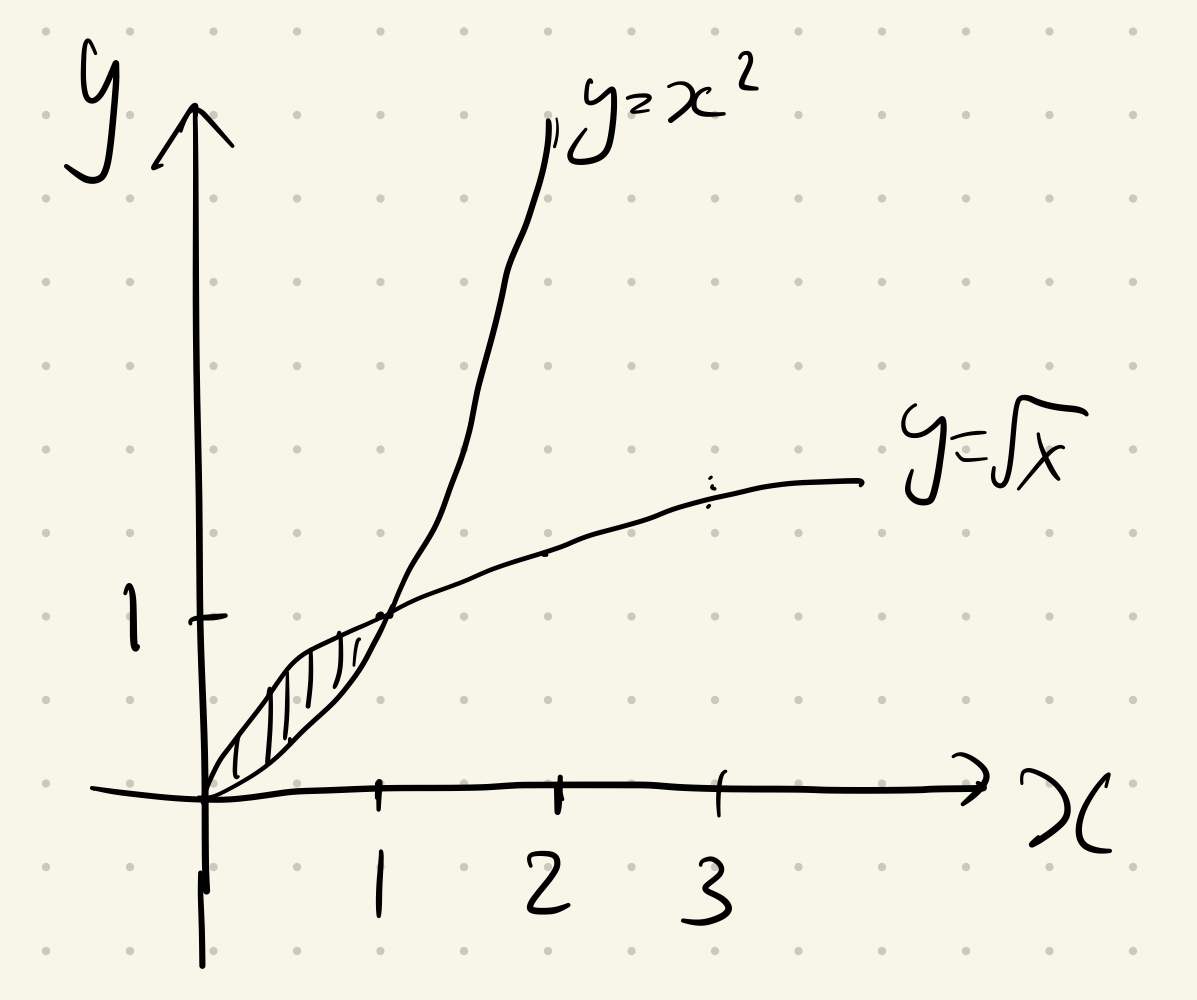 y
y=x²
y=√x
1
x
1 2 3